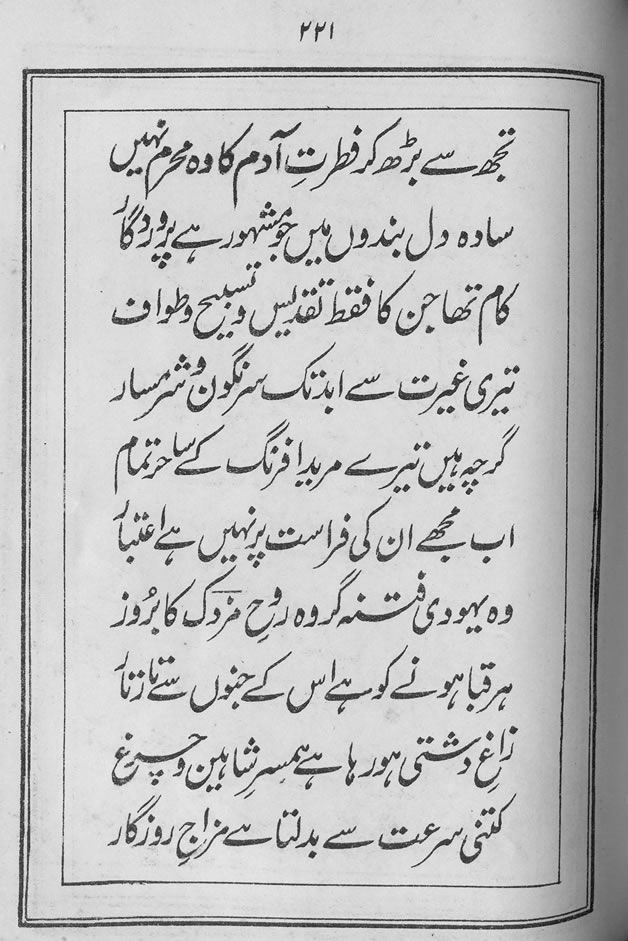 ۲۲۱
تجھ سے بڑھ کر فطرتِ آدم کا وہ محرم نہیں
سادہ دل بندوں میں جو مشہور ہے پروردگار
کام تھا جن کا فقط تقدیس و تسبیح و طواف
تیری غیرت سے ابد تک سرنگون و شرمسار
گرچہ ہیں تیرے مرید افرنگ کے ساحر تمام
اب مجھے ان کی فراست پر نہیں ہے اعتبار
وہ یہودی فتنہ گر وہ روحِ مزدک کا بُروز
ہر قبا ہونے کو ہے اس کے جنوں سے تار تار
زاغِ دشتی ہو رہا ہے ہمسرِ شاہین و چرغ
کتنی سرعت سے بدلتا ہے مزاجِ روزگار